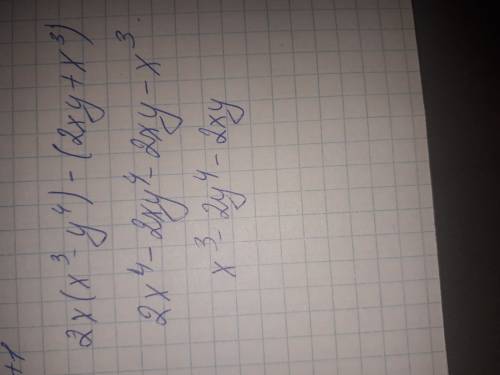 +1
2x(x³-y⁴)-(2xy+x³)
2x⁴-2xy⁴-2xy-x³
x³-2y⁴-2xy